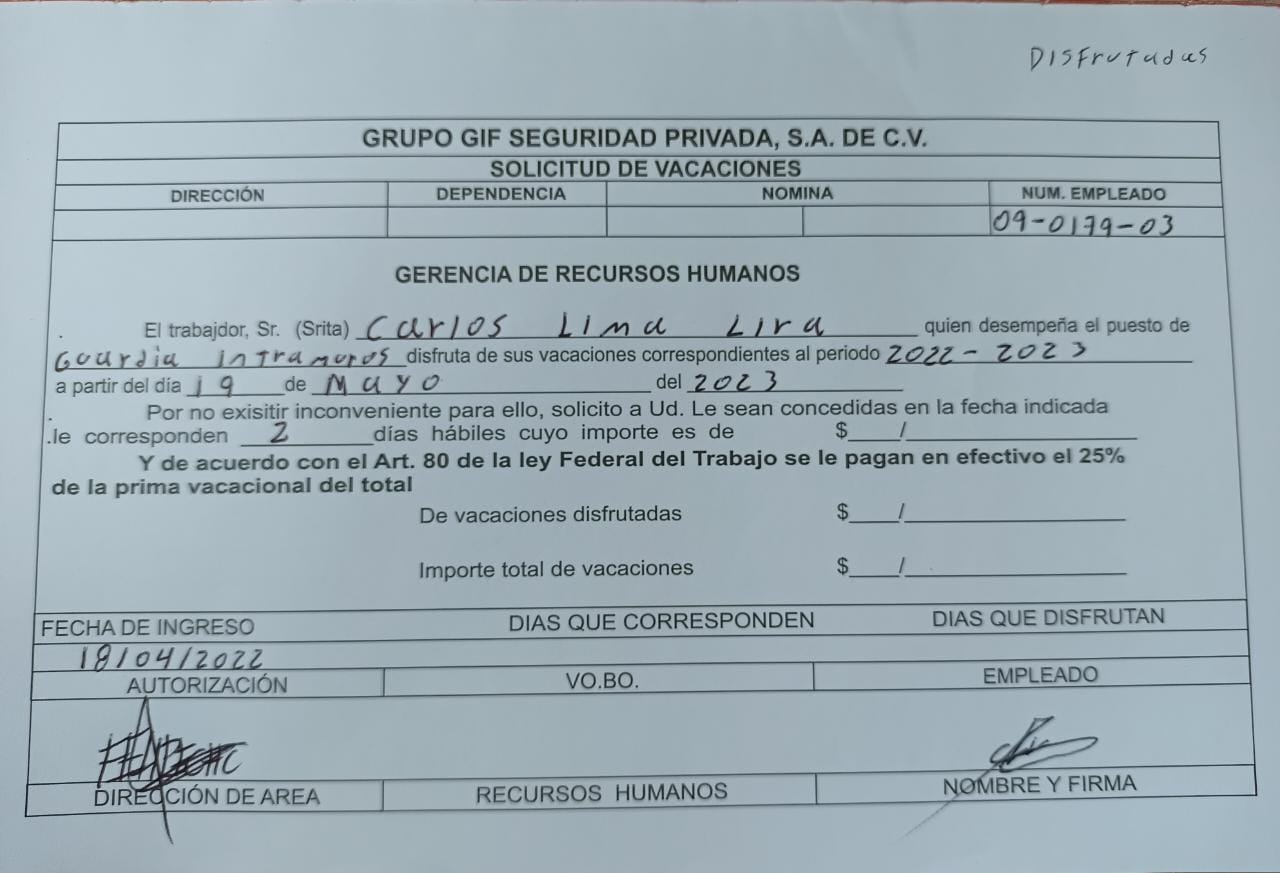 DISFrutadas
GRUPO GIF SEGURIDAD PRIVADA, S.A. DE C.V.
SOLICITUD DE VACACIONES
DIRECCIÓN DEPENDENCIA NOMINA NUM. EMPLEADO
09-0179-03
GERENCIA DE RECURSOS HUMANOS
El trabajdor, Sr. (Srita) Carlos Lima Lira quien desempeña el puesto de
Guardia intramuros disfruta de sus vacaciones correspondientes al periodo 2022-2023
a partir del día 19 de Mayo del 2023
Por no exisitir inconveniente para ello, solicito a Ud. Le sean concedidas en la fecha indicada
.le corresponden 2 días hábiles cuyo importe es de $ /
Y de acuerdo con el Art. 80 de la ley Federal del Trabajo se le pagan en efectivo el 25%
de la prima vacacional del total
De vacaciones disfrutadas $ /
Importe total de vacaciones $ /
FECHA DE INGRESO DIAS QUE CORRESPONDEN DIAS QUE DISFRUTAN
18/04/2022
AUTORIZACIÓN VO.BO. EMPLEADO
DIRECCIÓN DE AREA RECURSOS HUMANOS NOMBRE Y FIRMA